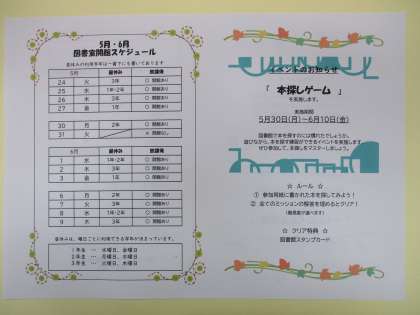 5月・6月
図書室開館スケジュール
昼休みの利用学年は一番下にも書いてあります
5月 昼休み 放課後
24 火 3年 ○ 開館あり
25 水 1年・2年 ○ 開館あり
26 木 3年 ○ 開館あり
27 金 1年 ○ 開館あり
30 月 2年 ○ 開館あり
31 火 × 開館なし
6月 昼休み 放課後
1 水 1年・2年 ○ 開館あり
2 木 3年 ○ 開館あり
3 金 1年 ○ 開館あり
6 月 2年 ○ 開館あり
7 火 3年 ○ 開館あり
8 水 1年・2年 ○ 開館あり
9 木 3年 ○ 開館あり
昼休みは、曜日ごとに利用できる学年が決まっています。
1年生 … 水曜日、金曜日
2年生 … 月曜日、水曜日
3年生 … 火曜日、木曜日
イベントのお知らせ
「 本探しゲーム 」
を実施します。
実施期間
5月30日(月)～6月10日(金)
図書館で本を探すのには慣れたでしょうか。
遊びながら、本を探す練習ができるイベントを実施します。
ぜひ参加して、本探しをマスターしましょう。
☆ ルール ☆
① 参加用紙に書かれた本を探してみよう！
② 全てのミッションの解答を埋めるとクリア！
(難易度が選べます)
☆ クリア特典 ☆
図書館スタンプカード